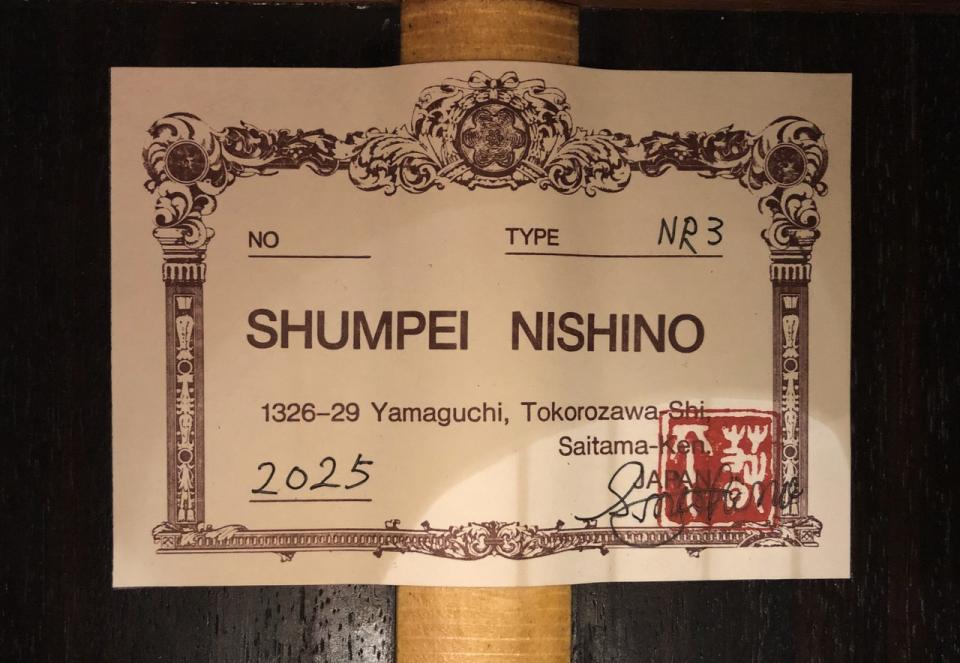 NO
TYPE NR3
SHUMPEI NISHINO
1326-29 Yamaguchi, Tokorozawa Shi,
Saitama-Ken,
2025
JAPAN